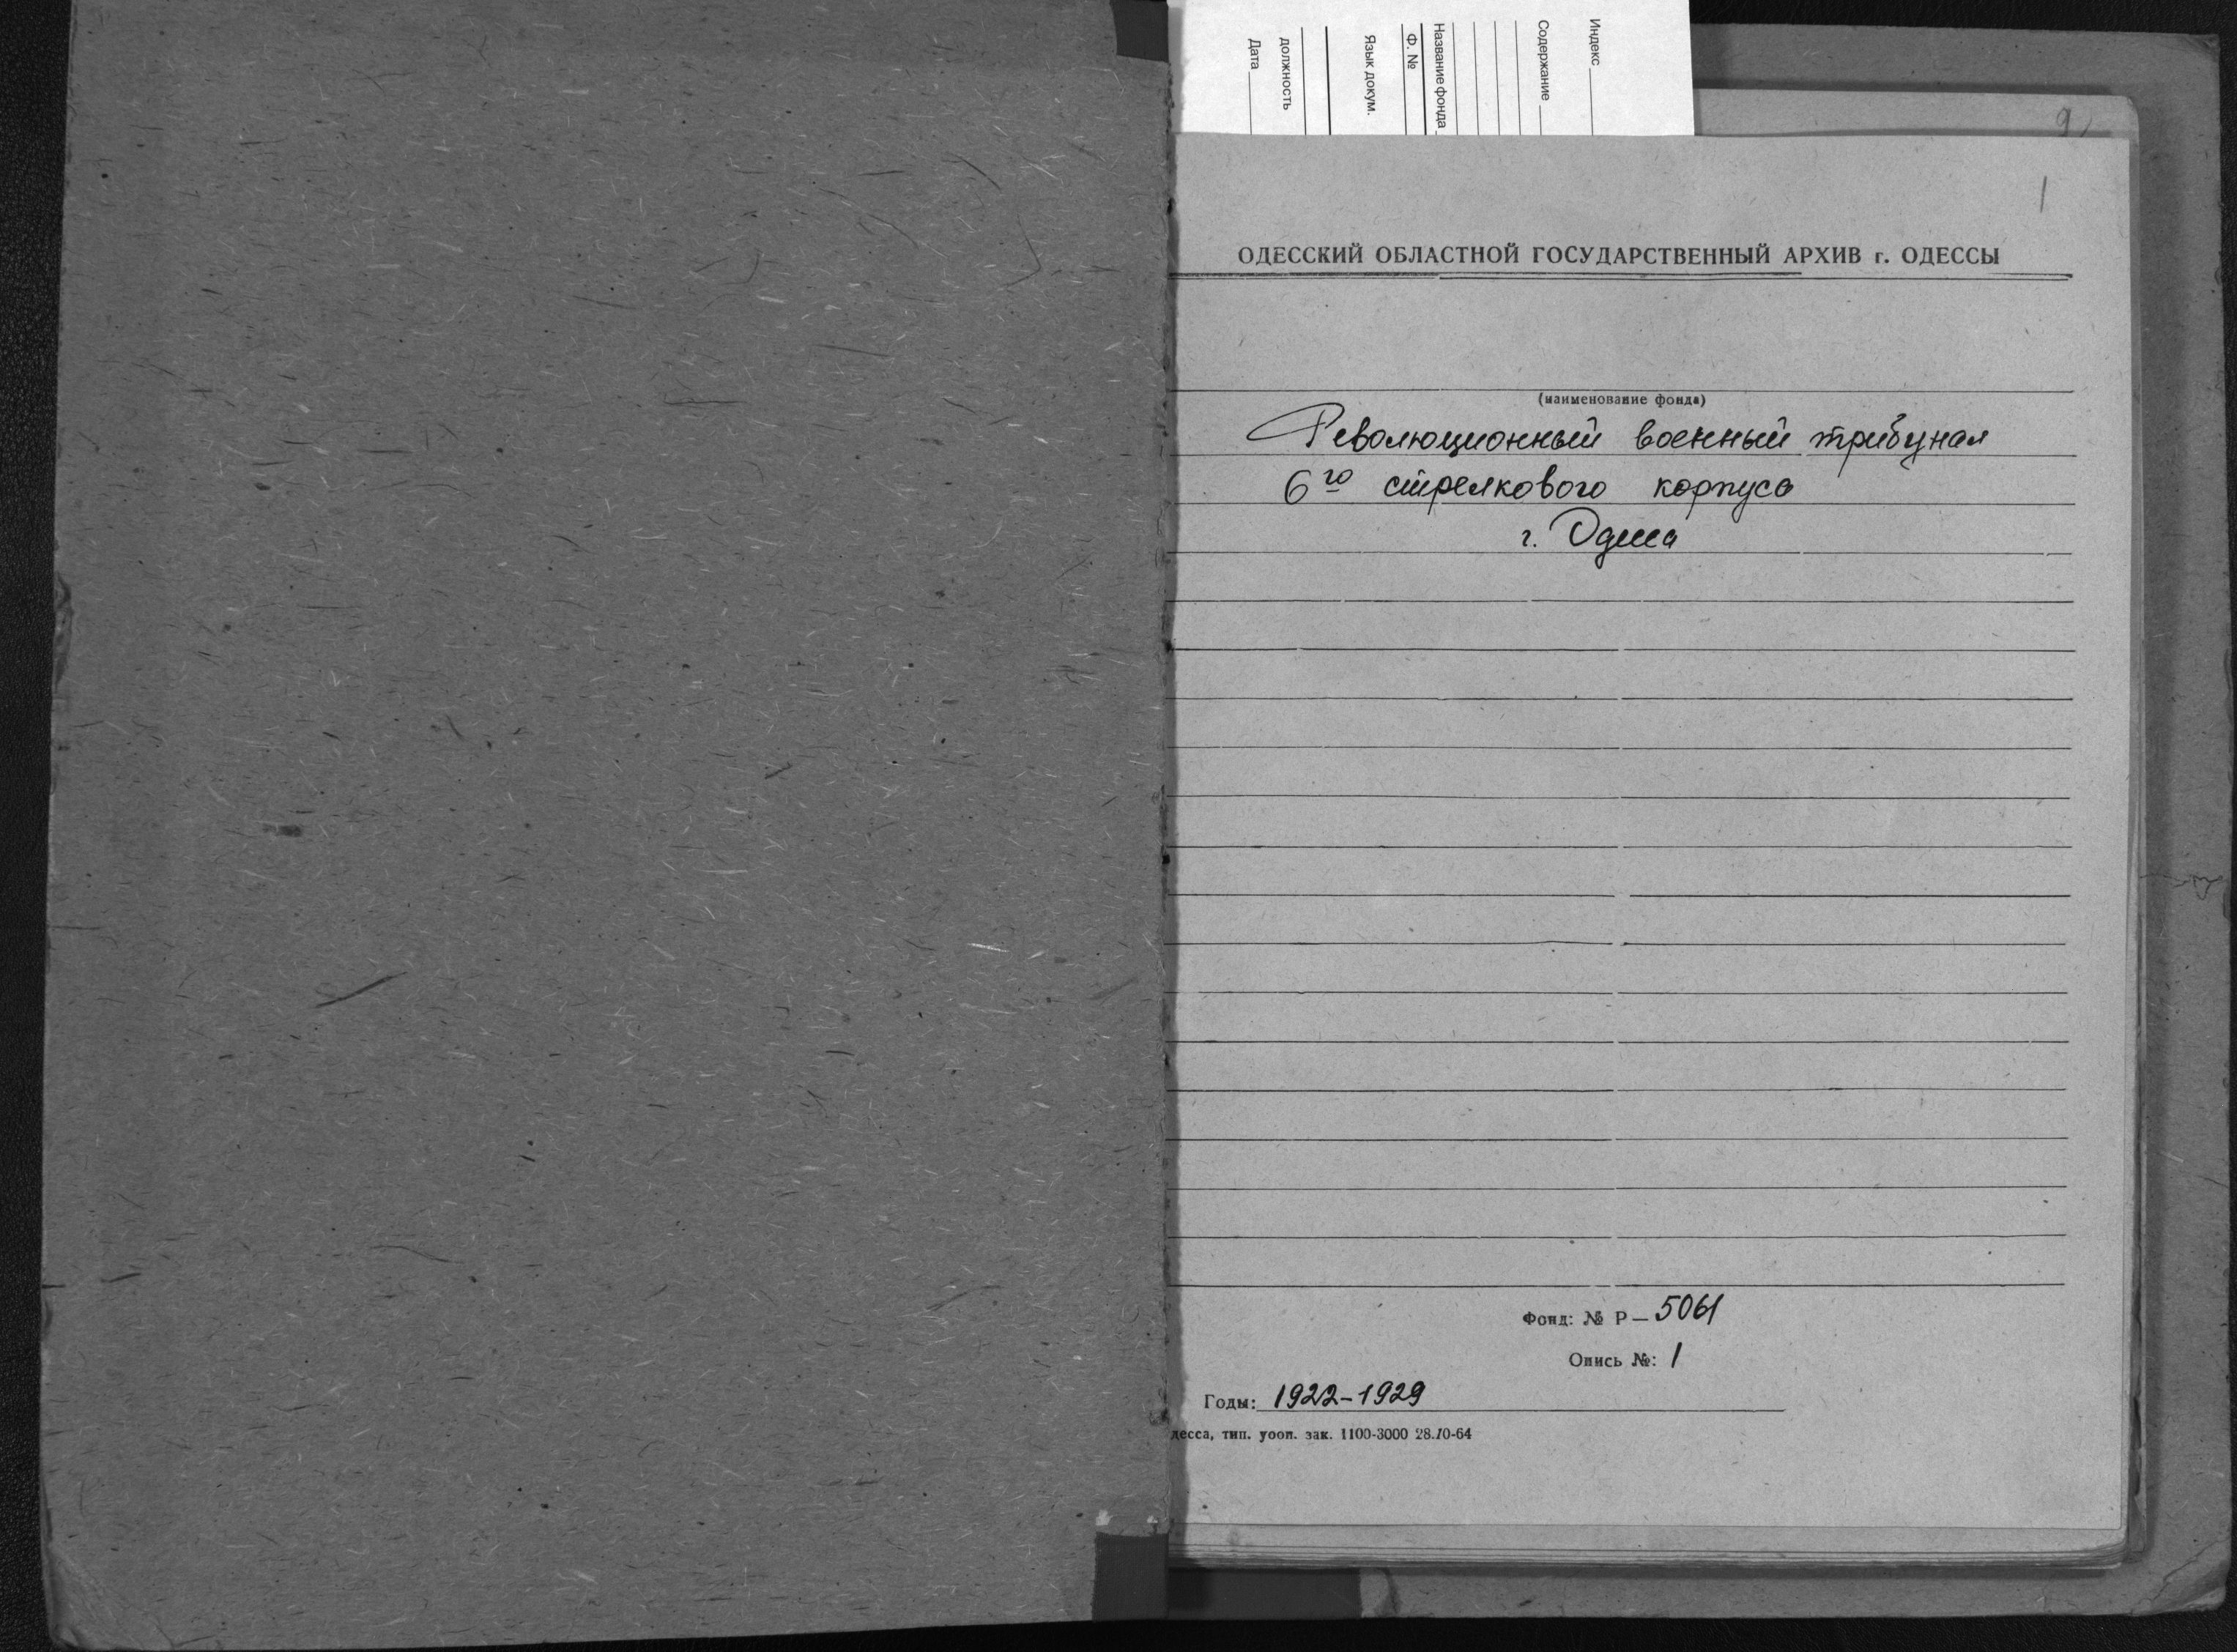 Индекс
Содержание
Название фонда
Ф. №
Язык докум.
должность
Дата
1
ОДЕССКИЙ ОБЛАСТНОЙ ГОСУДАРСТВЕННЫЙ АРХИВ г. ОДЕССЫ
(наименование фонда)
Революционный военный трибунал
6го стрелкового корпуса
г. Одесса
Фонд: № Р— 5061
Опись №: 1
Годы: 1922-1929
десса, тип. уооп. зак. 1100-3000 28.10-64